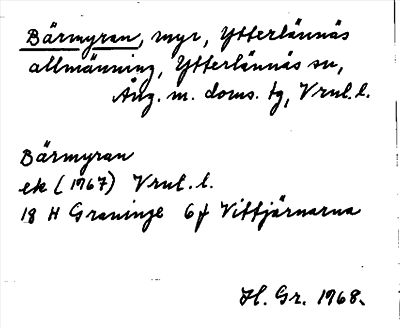 Bärmyran, myr, Ytterlännäs
allmänning, Ytterlännäs sn,
Ång. m. doms. tg, Vrnl. l.
Bärmyran
ek (1967) Vrnl. l.
18 H Graninge 6 f Vittjärnarna
H. Gr. 1968.